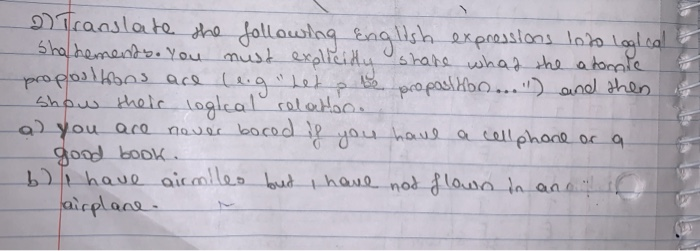 2) Translate the following English expressions into logical
statements. You must explicitly state what the atomic
propositions are (e.g "Let p be proposition...") and then
show their logical relation.
a) you are never bored if you have a cellphone or a
good book.
b) I have airmiles but I have not flown in an
airplane.